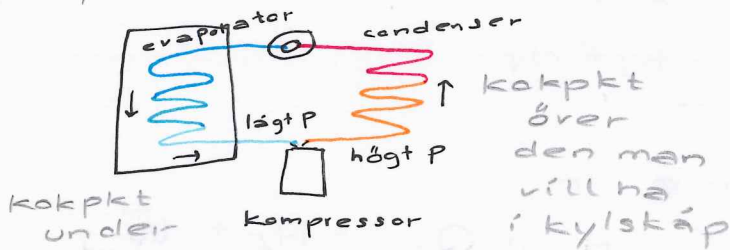 evaporator
condenser
lågt P
högt P
kompressor
kokpkt
under
kokpkt
över
den man
vill ha
i kylskåp